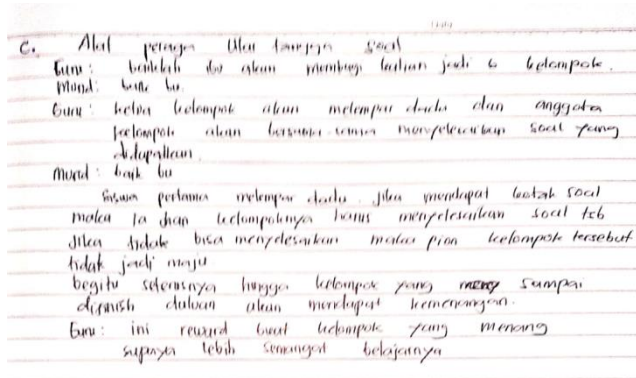 C. Alat peraga Ular tangga soal
Guru : baiklah ibu akan membagi kalian jadi 6 kelompok.
Murid : baik bu.
Guru : ketua kelompok akan melempar dadu dan anggota
kelompok akan bersama-sama menyelesaikan soal yang
didapatkan.
Murid : baik bu
Siswa pertama melempar dadu. jika mendapat kotak soal
maka ia dan kelompoknya harus menyelesaikan soal tsb
Jika tidak bisa menyelesaikan maka pion kelompok tersebut
tidak jadi maju
begitu seterusnya hingga kelompok yang sampai
difinish duluan akan mendapat kemenangan.
Guru : ini reward buat kelompok yang menang
supaya lebih semangat belajarnya